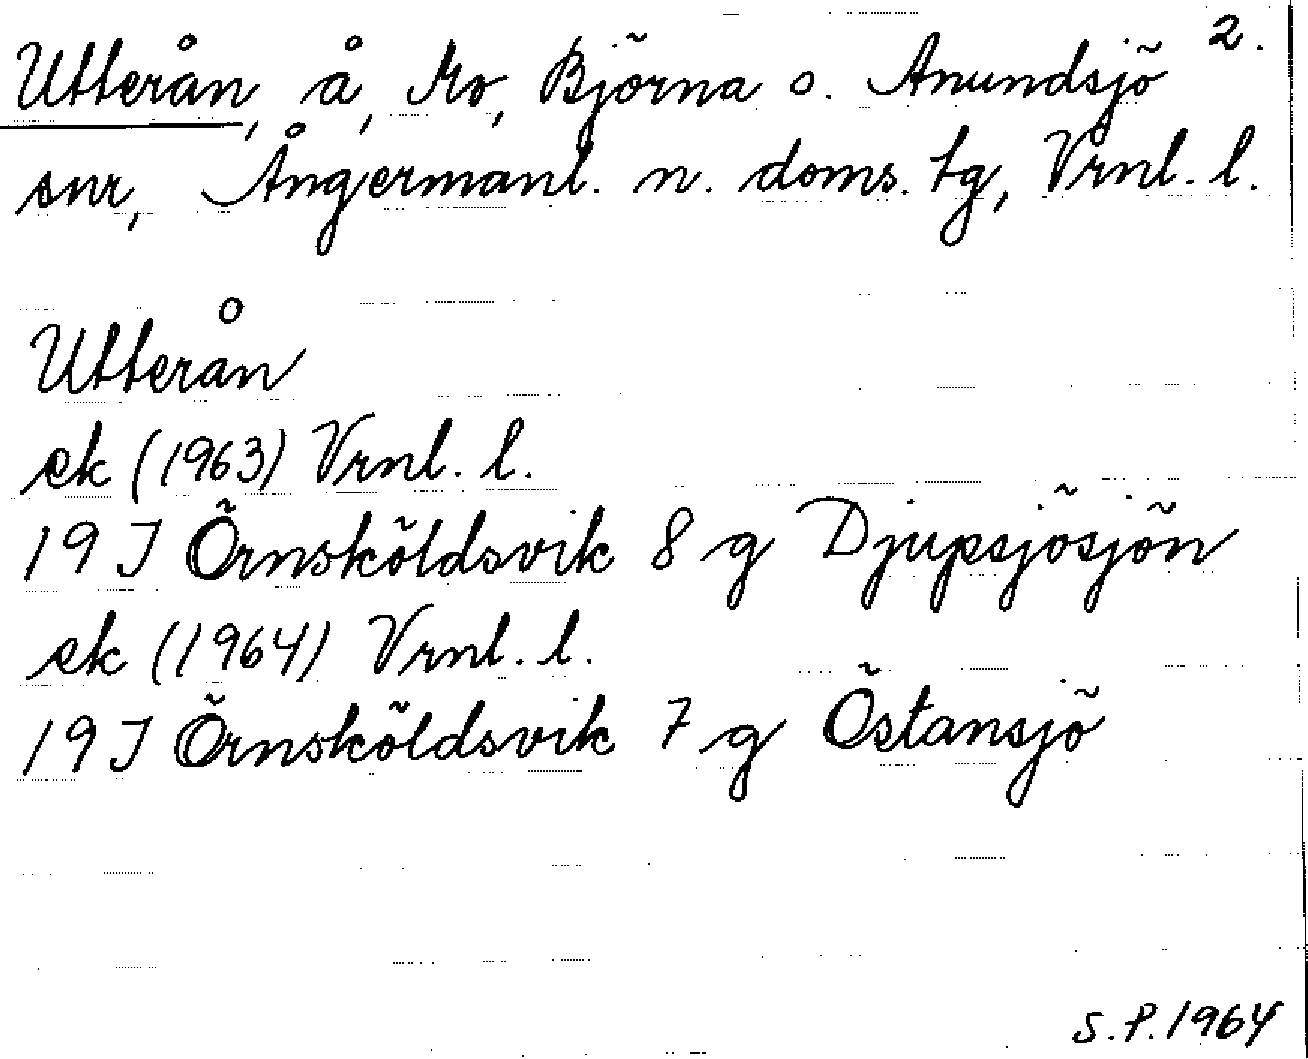 Utterån, å, Mo, Björna o. Anundsjö 2.
snr, Ångermanl. n. doms. tg, Vrnl. l.
Utterån
ek (1963) Vrnl. l.
19 J Örnsköldsvik 8 g Djupsjösjön
ek (1964) Vrnl. l.
19 J Örnsköldsvik 7 g Östansjö
S.P. 1964